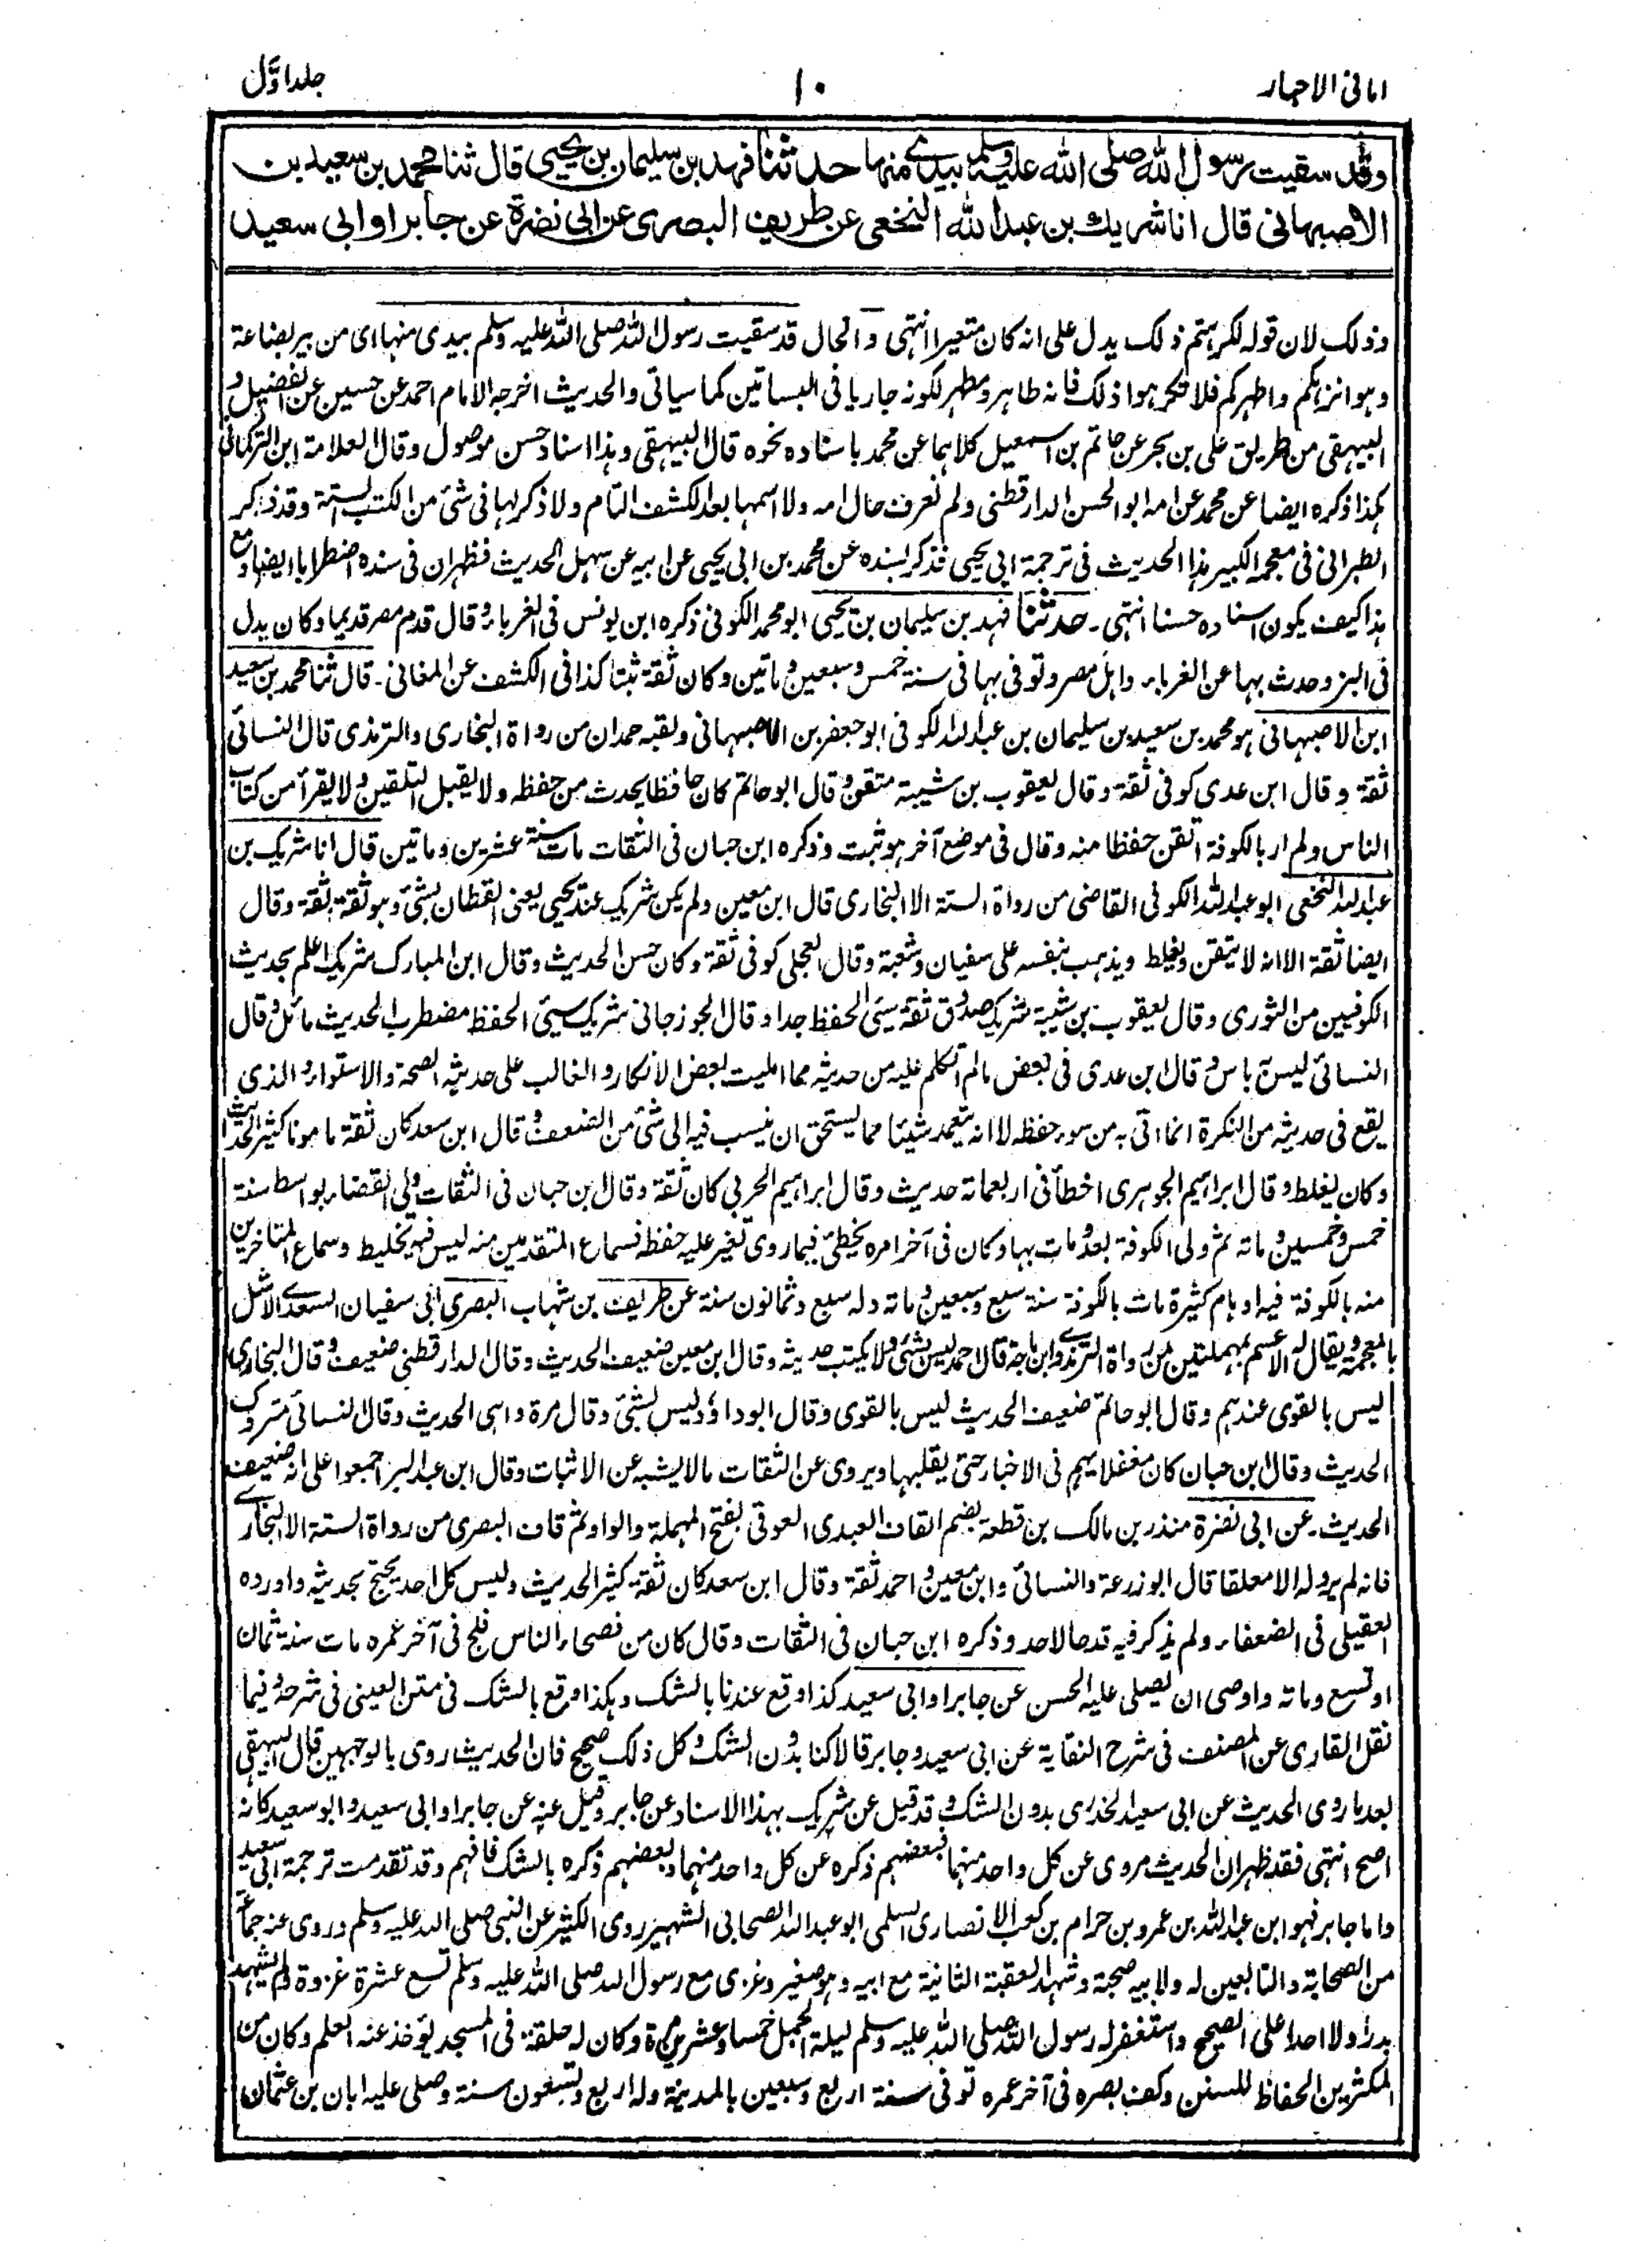 امانی الاحبار
۱۰
جلد اوّل
وقد سقيت رسول الله صلى الله عليه وسلم بيدي منها حدثنا فهد بن سليمان بن يحيى قال ثنا محمد بن سعيد بن
الاصبهانى قال انا شريك بن عبد الله النخعى عن طريف البصرى عن ابى نضرة عن جابر او ابى سعيد
وذلك لان قوله لكرهتم ذلك يدل على انه كان متغيرا انتهى والحال قد سقيت رسول الله صلى الله عليه وسلم بيدى منها اى من بير بضاعة
وهو انزهكم واطهركم فلا تكرهوا ذلك فانه طاهر ومطهر لكونه جاريا فى البساتين كما سياتى والحديث اخرجه الامام احمد عن حسين عن الفضيل و
البيهقى من طريق على بن بحر عن حاتم بن اسمعيل كلاهما عن محمد باسناده نحوه قال البيهقى وهذا اسناد حسن موصول وقال العلامة ابن التركمانى
كهذا ذكره ايضا عن محمد عن امه ابو الحسن الدارقطنى ولم نعرف حال امه ولا اسمها بعد الكشف التام ولا ذكر لها فى شئ من الكتب الستة وقد ذكر
الطبرانى فى معجمه الكبير هذا الحديث فى ترجمة ابى يحيى فذكر بسنده عن محمد بن ابى يحيى عن ابيه عن سهل الحديث فظهر ان فى سنده اضطرابا ايضا ومع
هذا كيف يكون اسناده حسنا انتهى۔ حدثنا فهد بن سليمان بن يحيى ابو محمد الكوفى ذكره ابن يونس فى الغرباء وقال قدم مصر قديما وكان يدل
فى البز وحدث بها عن الغرباء واهل مصر وتوفى بها فى سنة خمس وسبعين وماتين وكان ثقة ثبتا كذا فى الكشف عن المغانى۔ قال ثنا محمد بن سعيد
ابن الاصبهانى هو محمد بن سعيد بن سليمان بن عبد الله الكوفى ابو جعفر بن الاصبهانى ولقبه حمدان من رواة البخارى والترمذى قال النسائى
ثقة وقال ابن عدى كوفى ثقة وقال يعقوب بن شيبة متقن وقال ابو حاتم كان حافظا يحدث من حفظه ولا يقبل التلقين ولا يقرأ من كتاب
الناس ولم ار بالكوفة اتقن حفظا منه وقال فى موضع آخر هو ثبت وذكره ابن حبان فى الثقات مات سنة عشرين وماتين قال انا شريك بن
عبد الله النخعى ابو عبد الله الكوفى القاضى من رواة الستة الا البخارى قال ابن معين ولم يكن شريك عند يحيى يعنى القطان بشئ وهو ثقة ثقة وقال
ايضا ثقة الا انه لا يتقن ويغلط ويذهب بنفسه على سفيان وشعبة وقال العجلى كوفى ثقة وكان حسن الحديث وقال ابن المبارك شريك اعلم بحديث
الكوفيين من الثورى وقال يعقوب بن شيبة شريك صدوق ثقة سيئ الحفظ جدا وقال الجوزجانى شريك سيئ الحفظ مضطرب الحديث مائل وقال
النسائى ليس به باس وقال ابن عدى فى بعض مالم اتكلم عليه من حديثه مما امليت بعض الانكار والغالب على حديثه الصحة والاستواء والذى
يقع فى حديثه من النكرة انما اتى به من سوء حفظه لا انه يتعمد شيئا مما يستحق ان ينسب فيه الى شئ من الضعف وقال ابن سعد كان ثقة مامونا كثير الحديث
وكان يغلط وقال ابراهيم الجوهرى اخطأ فى اربعمائة حديث وقال ابراهيم الحربى كان ثقة وقال ابن حبان فى الثقات ولى القضاء بواسط سنة
خمس وخمسين ومائة ثم ولى الكوفة بعد ومات بها وكان فى آخر امره يخطئ فيما روى تغير عليه حفظه فسماع المتقدمين منه ليس فيه تخليط وسماع المتاخرين
منه بالكوفة فيه اوهام كثيرة مات بالكوفة سنة سبع وسبعين ومائة وله سبع وثمانون سنة عن طريف بن شهاب البصرى ابى سفيان السعدى الاشل
بالمعجمة ويقال له الاعسم بمهملتين من رواة الترمذى وابن ماجة قال احمد ليس بشئ ولا يكتب حديثه وقال ابن معين ضعيف الحديث وقال الدارقطنى ضعيف وقال البخارى
ليس بالقوى عندهم وقال ابو حاتم ضعيف الحديث ليس بالقوى وقال ابو داؤد ليس بشئ وقال مرة واهى الحديث وقال النسائى متروك
الحديث وقال ابن حبان كان مغفلا يهم فى الاخبار حتى يقلبها ويروى عن الثقات مالا يشبه عن الاثبات وقال ابن عبد البر اجمعوا على انه ضعيف
الحديث۔ عن ابى نضرة منذر بن مالك بن قطعة بضم القاف العبدى العوقى بفتح المهملة والواو ثم قاف البصرى من رواة الستة الا البخارى
فانه لم يرو له الا معلقا قال ابو زرعة والنسائى وابن معين واحمد ثقة وقال ابن سعد كان ثقة كثير الحديث وليس كل احد يحتج بحديثه واورده
العقيلى فى الضعفاء ولم يذكر فيه قدحا لاحد وذكره ابن حبان فى الثقات وقال كان من فصحاء الناس فلج فى آخر عمره مات سنة ثمان
او تسع ومائة واوصى ان يصلى عليه الحسن عن جابر او ابى سعيد كذا وقع عندنا بالشك وهكذا وقع بالشك فى متن العينى فى شرحه وفيما
نقل القارى عن المصنف فى شرح النقاية عن ابى سعيد وجابر قالا كنا بدون الشك وكل ذلك صحيح فان الحديث روى بالوجهين قال البيهقى
بعد ما روى الحديث عن ابى سعيد الخدرى بدون الشك وقد قيل عن شريك بهذا الاسناد عن جابر وقيل عنه عن جابر او ابى سعيد وابو سعيد كانه
اصح انتهى فقد ظهر ان الحديث مروى عن كل واحد منهما فبعضهم ذكره عن كل واحد منهما وبعضهم ذكره بالشك فافهم وقد تقدمت ترجمة ابى سعيد
واما جابر فهو ابن عبد الله بن عمرو بن حرام بن كعب الانصارى السلمى ابو عبد الله الصحابى الشهير روى الكثير عن النبى صلى الله عليه وسلم وروى عنه جماعة
من الصحابة والتابعين له ولابيه صحبة وشهد العقبة الثانية مع ابيه وهو صغير وغزى مع رسول الله صلى الله عليه وسلم تسع عشرة غزوة ولم يشهد
بدرا ولا احدا على الصحيح واستغفر له رسول الله صلى الله عليه وسلم ليلة الجمل خمسا وعشرين مرة وكان له حلقة فى المسجد يؤخذ عنه العلم وكان من
المكثرين الحفاظ للسنن وكف بصره فى آخر عمره توفى سنة اربع وسبعين بالمدينة وله اربع وتسعون سنة وصلى عليه ابان بن عثمان